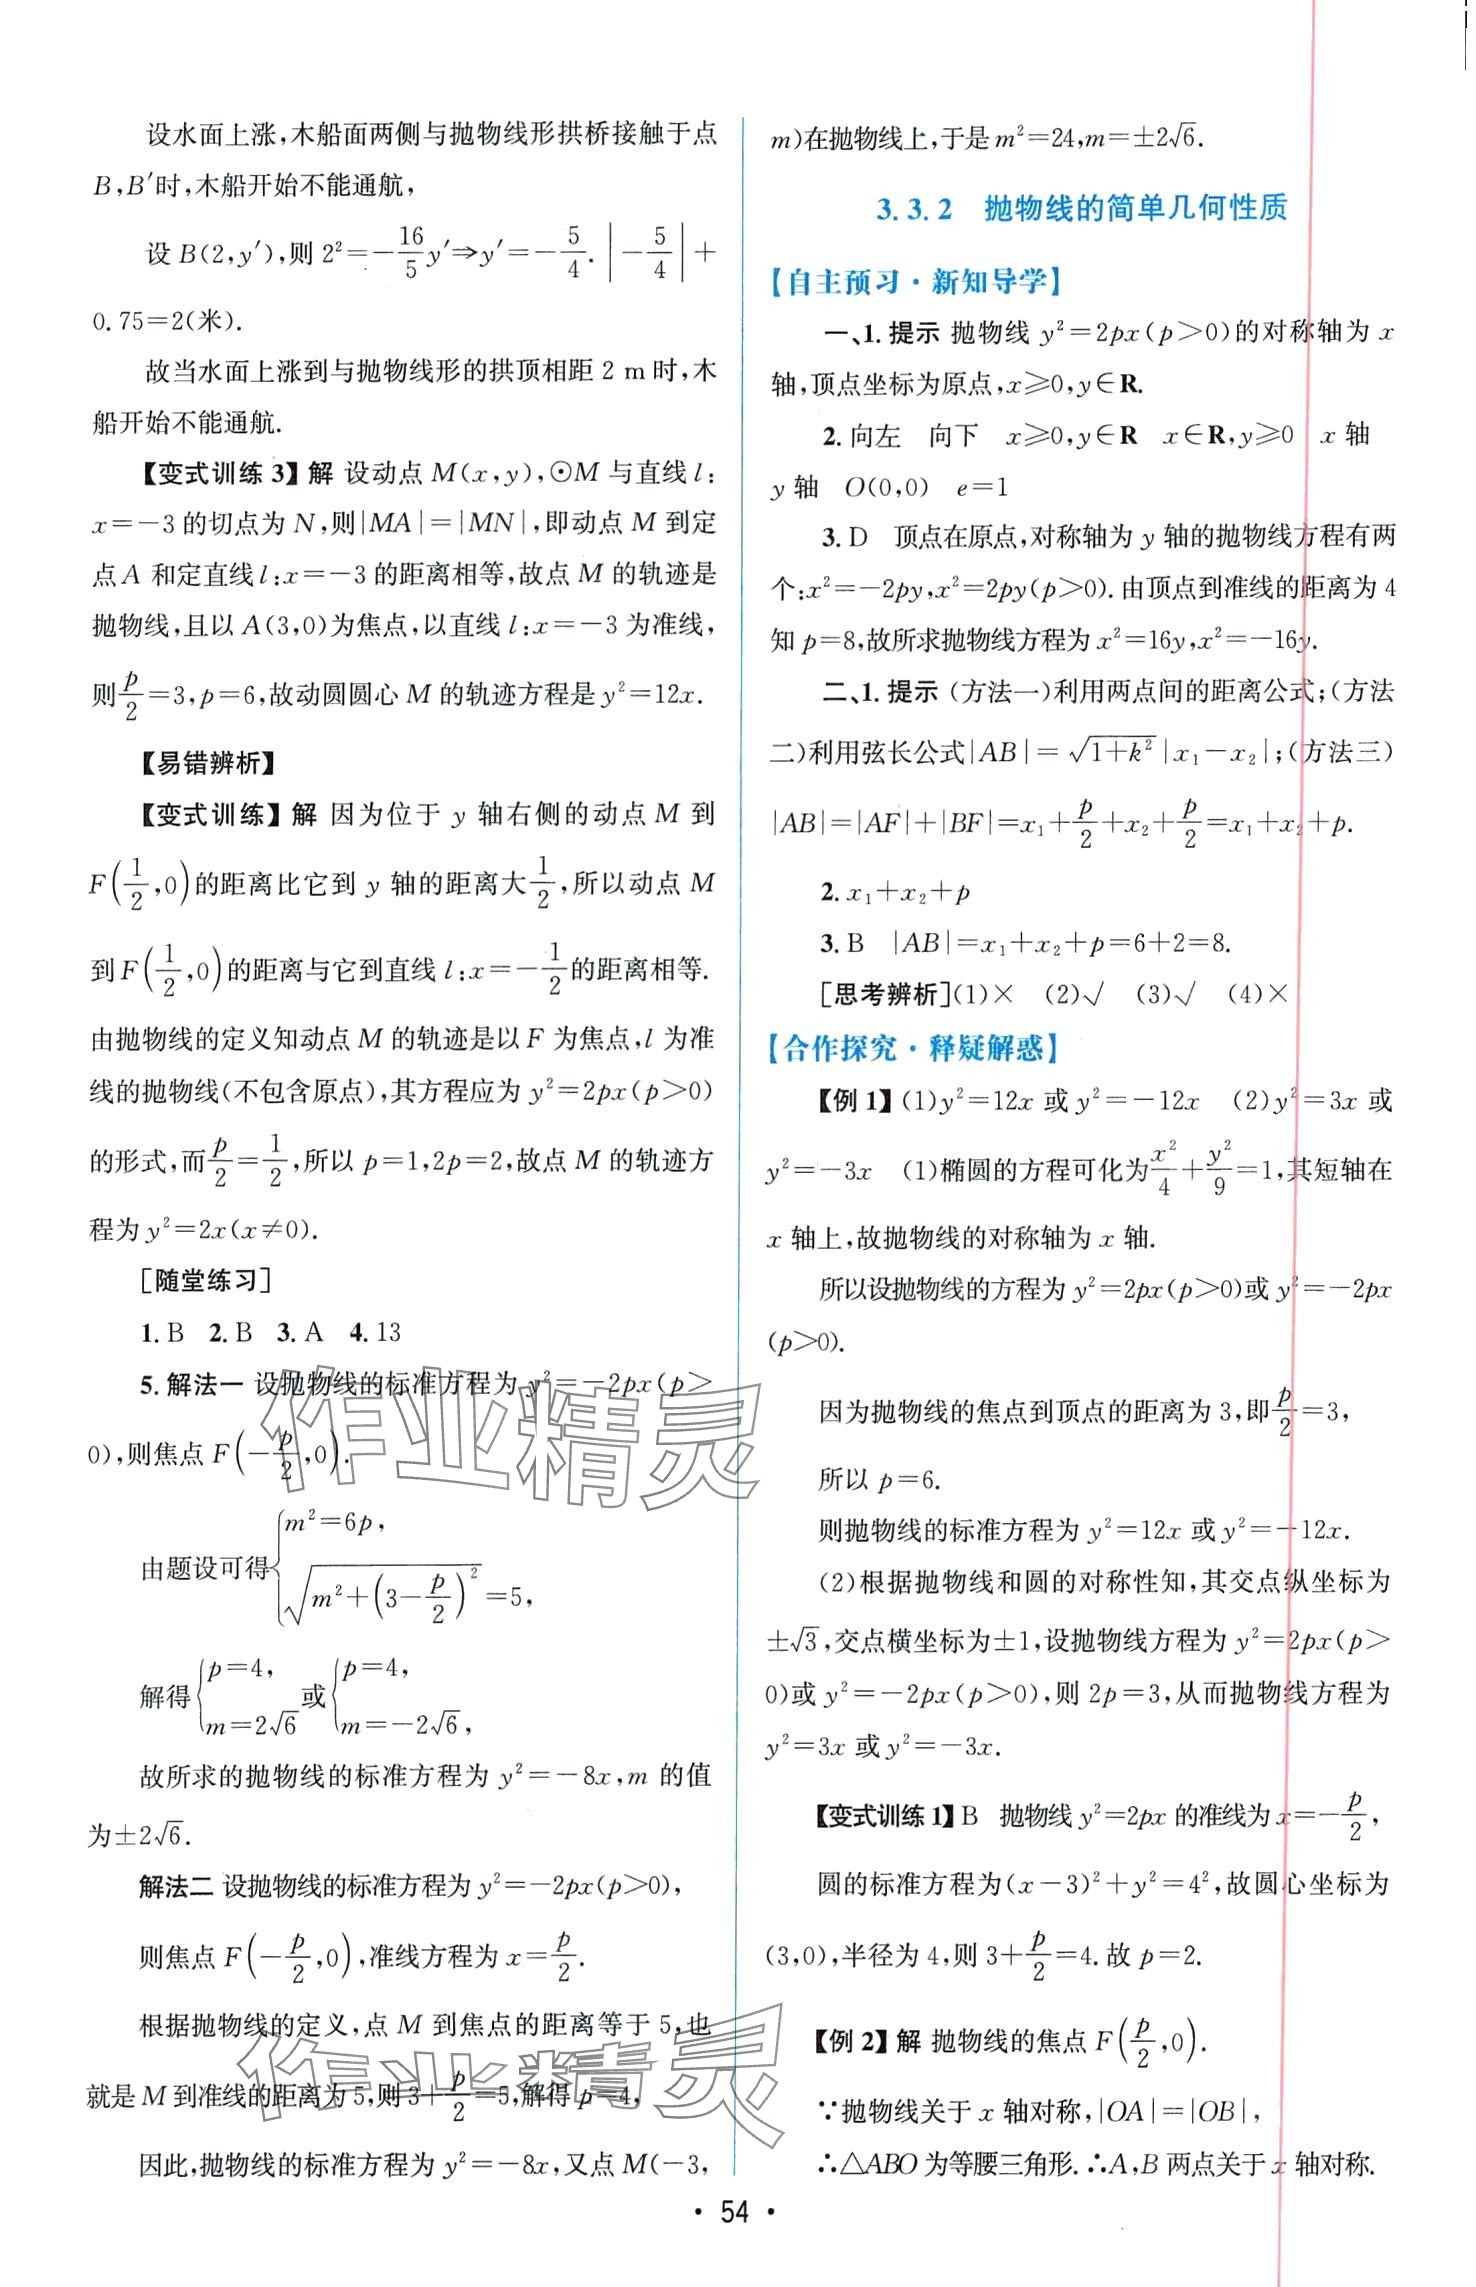 设水面上涨,木船面两侧与抛物线形拱桥接触于点
B,B′时,木船开始不能通航,
设 B(2,y′),则 2²=-16/5 y′⇒y′=-5/4. |-5/4|+
0.75=2(米).
故当水面上涨到与抛物线形的拱顶相距 2 m 时,木
船开始不能通航.
【变式训练 3】解 设动点 M(x,y),⊙M 与直线 l:
x=-3 的切点为 N,则|MA|=|MN|,即动点 M 到定
点 A 和定直线 l:x=-3 的距离相等,故点 M 的轨迹是
抛物线,且以 A(3,0)为焦点,以直线 l:x=-3 为准线,
则p/2=3,p=6,故动圆圆心 M 的轨迹方程是 y²=12x.
【易错辨析】
【变式训练】解 因为位于 y 轴右侧的动点 M 到
F(1/2,0)的距离比它到 y 轴的距离大1/2,所以动点 M
到 F(1/2,0)的距离与它到直线 l:x=-1/2的距离相等.
由抛物线的定义知动点 M 的轨迹是以 F 为焦点,l 为准
线的抛物线(不包含原点),其方程应为 y²=2px(p>0)
的形式,而p/2=1/2,所以 p=1,2p=2,故点 M 的轨迹方
程为 y²=2x(x≠0).
[随堂练习]
1.B 2.B 3.A 4.13
5.解法一 设抛物线的标准方程为 y²=-2px(p>
0),则焦点 F(-p/2,0).
由题设可得{m²=6p,
√(m²+(3-p/2)²)=5,
解得{p=4, m=2√6 或{p=4, m=-2√6,
故所求的抛物线的标准方程为 y²=-8x,m 的值
为±2√6.
解法二 设抛物线的标准方程为 y²=-2px(p>0),
则焦点 F(-p/2,0),准线方程为 x=p/2.
根据抛物线的定义,点 M 到焦点的距离等于 5,也
就是 M 到准线的距离为 5,则 3+p/2=5,解得 p=4,
因此,抛物线的标准方程为 y²=-8x,又点 M(-3,
m)在抛物线上,于是 m²=24,m=±2√6.
3.3.2 抛物线的简单几何性质
【自主预习·新知导学】
一、1.提示 抛物线 y²=2px(p>0)的对称轴为 x
轴,顶点坐标为原点,x≥0,y∈R.
2.向左 向下 x≥0,y∈R x∈R,y≥0 x 轴
y 轴 O(0,0) e=1
3.D 顶点在原点,对称轴为 y 轴的抛物线方程有两
个:x²=-2py,x²=2py(p>0).由顶点到准线的距离为 4
知 p=8,故所求抛物线方程为 x²=16y,x²=-16y.
二、1.提示 (方法一)利用两点间的距离公式;(方法
二)利用弦长公式|AB|=√(1+k²)|x₁-x₂|;(方法三)
|AB|=|AF|+|BF|=x₁+p/2+x₂+p/2=x₁+x₂+p.
2.x₁+x₂+p
3.B |AB|=x₁+x₂+p=6+2=8.
[思考辨析](1)× (2)√ (3)√ (4)×
【合作探究·释疑解惑】
【例 1】(1)y²=12x 或 y²=-12x (2)y²=3x 或
y²=-3x (1)椭圆的方程可化为x²/4+y²/9=1,其短轴在
x 轴上,故抛物线的对称轴为 x 轴.
所以设抛物线的方程为 y²=2px(p>0)或 y²=-2px
(p>0).
因为抛物线的焦点到顶点的距离为 3,即p/2=3,
所以 p=6.
则抛物线的标准方程为 y²=12x 或 y²=-12x.
(2)根据抛物线和圆的对称性知,其交点纵坐标为
±√3,交点横坐标为±1,设抛物线方程为 y²=2px(p>
0)或 y²=-2px(p>0),则 2p=3,从而抛物线方程为
y²=3x 或 y²=-3x.
【变式训练 1】B 抛物线 y²=2px 的准线为 x=-p/2,
圆的标准方程为(x-3)²+y²=4²,故圆心坐标为
(3,0),半径为 4,则 3+p/2=4.故 p=2.
【例 2】解 抛物线的焦点 F(p/2,0).
∵抛物线关于 x 轴对称,|OA|=|OB|,
∴△ABO 为等腰三角形.∴A,B 两点关于 x 轴对称.
· 54 ·
作业精灵
作业精灵